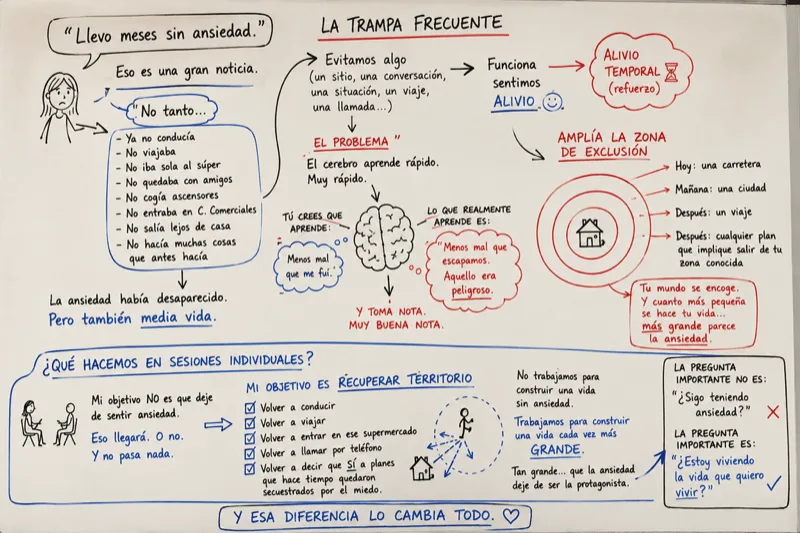 "Llevo meses sin ansiedad."
Eso es una gran noticia.
"No tanto...
- Ya no conducía
- No viajaba
- No iba sola al súper
- No quedaba con amigos
- No cogía ascensores
- No entraba en C. Comerciales
- No salía lejos de casa
- No hacía muchas cosas
que antes hacía
La ansiedad había desaparecido.
Pero también media vida.
LA TRAMPA FRECUENTE
Evitamos algo
(un sitio, una conversación,
una situación, un viaje,
una llamada...)
Funciona
sentimos
ALIVIO
ALIVIO
TEMPORAL
(refuerzo)
EL PROBLEMA "
El cerebro aprende rápido.
Muy rápido.
TÚ CREES QUE
APRENDE:
Menos mal
que me fui."
LO QUE REALMENTE
APRENDE ES:
"Menos mal que
escapamos.
Aquello era
peligroso.
Y TOMA NOTA.
MUY BUENA NOTA.
AMPLÍA LA ZONA
DE EXCLUSIÓN
Hoy: una carretera
Mañana: una ciudad
Después: un viaje
Después: cualquier plan
que implique salir de tu
zona conocida
Tu mundo se encoge.
Y cuanto más pequeña
se hace tu vida...
más grande parece
la ansiedad.
¿QUÉ HACEMOS EN SESIONES INDIVIDUALES?
Mi objetivo NO es que deje
de sentir ansiedad.
Eso llegará. O no.
Y no pasa nada.
MI OBJETIVO ES RECUPERAR TERRITORIO
Volver a conducir
Volver a viajar
Volver a entrar en ese supermercado
Volver a llamar por teléfono
Volver a decir que SÍ a planes
que hace tiempo quedaron
secuestrados por el miedo.
No trabajamos para
construir una vida
sin ansiedad.
Trabajamos para construir
una vida cada vez más
GRANDE.
Tan grande... que la ansiedad
deje de ser la protagonista.
LA PREGUNTA
IMPORTANTE NO ES:
"¿Sigo teniendo
ansiedad?"
LA PREGUNTA
IMPORTANTE ES:
"¿Estoy viviendo
la vida que quiero
vivir?"
Y ESA DIFERENCIA LO CAMBIA TODO.